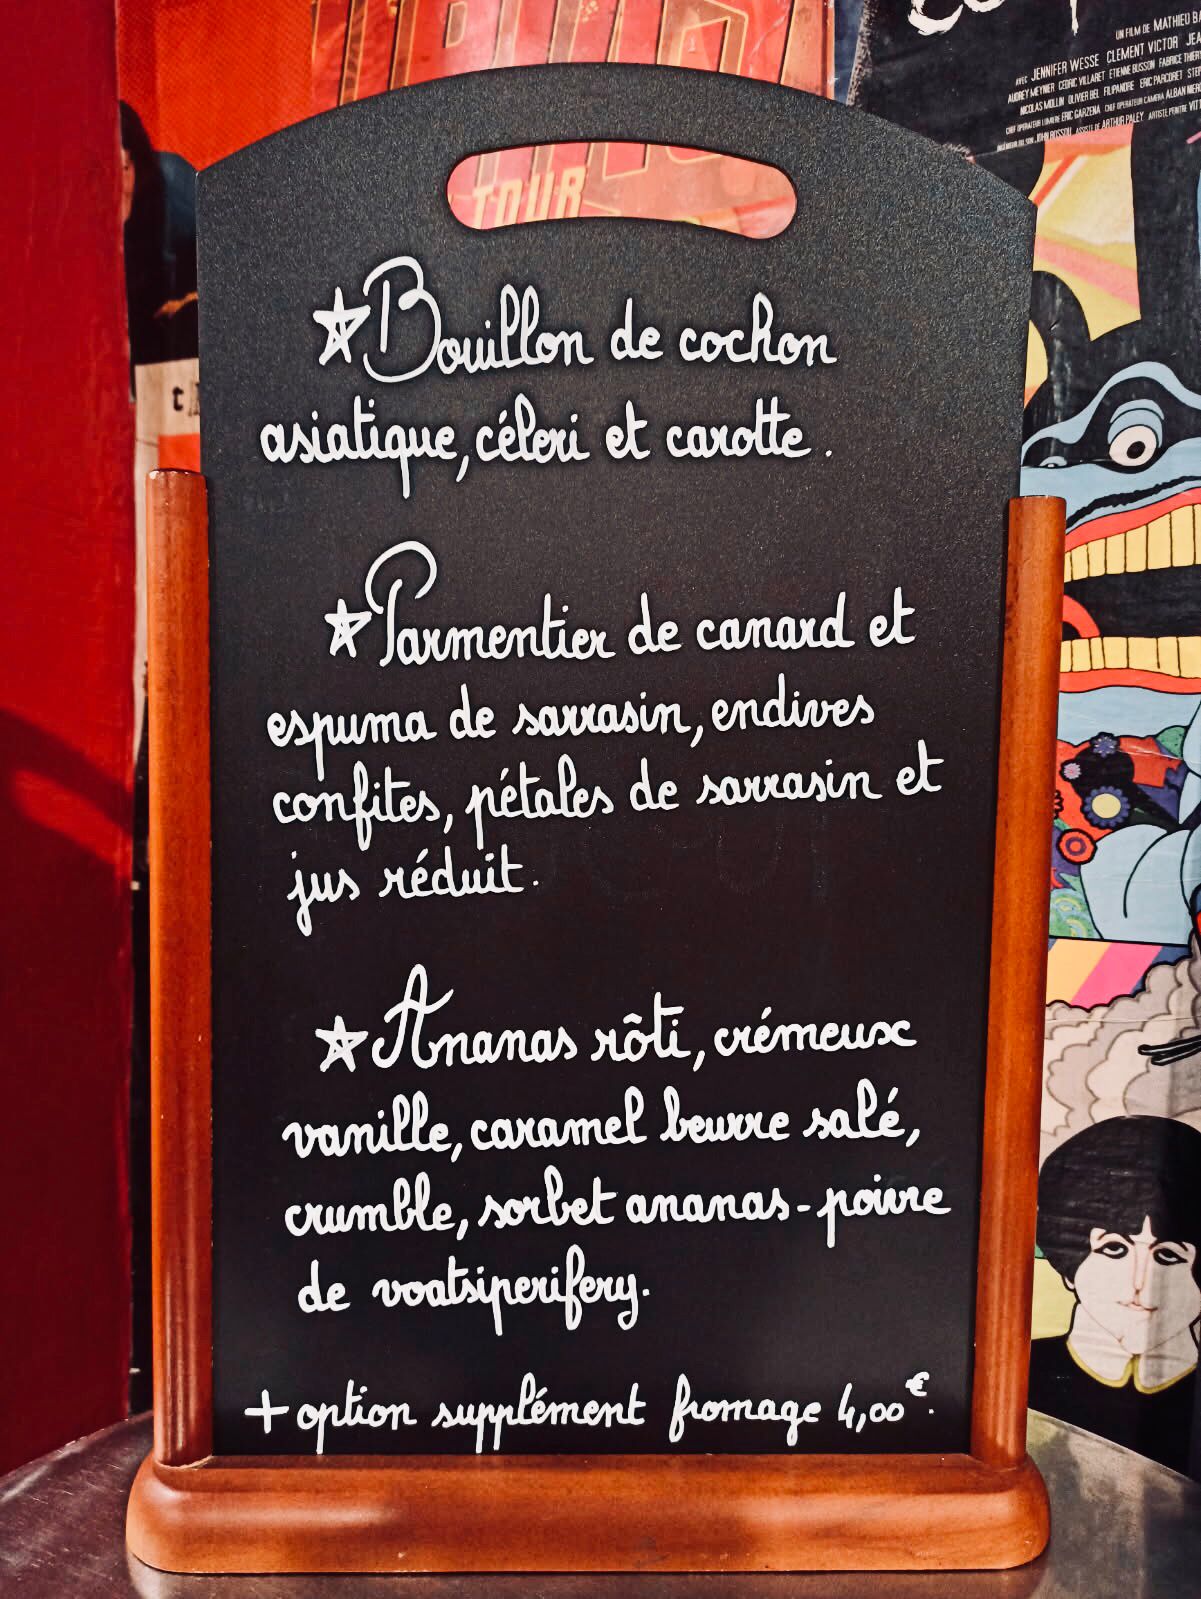 UN FILM DE MATHIEU
AVEC JENNIFER WESSE CLEMENT VICTOR
AUDREY MEYNIER CEDRIC VILLARET ETIENNE BUSSON
NICOLAS MOLLIN OLIVIER BEL FILIPANDRE ERIC PARCORET
CHEF OPERATEUR LUMIERE ERIC GARZENA CHEF OPERATEUR CAMERA ALBAN
JOHN BOSSOU, ASSISTE DE ARTHUR PALEY ARTISTE PEINTRE
TOUR
★Bouillon de cochon
asiatique, céleri et carotte.
★Parmentier de canard et
espuma de sarrasin, endives
confites, pétales de sarrasin et
jus réduit.
★Ananas rôti, crémeux
vanille, caramel beurre salé,
crumble, sorbet ananas-poivre
de voatsiperifery.
+ option supplément fromage 4,00€.